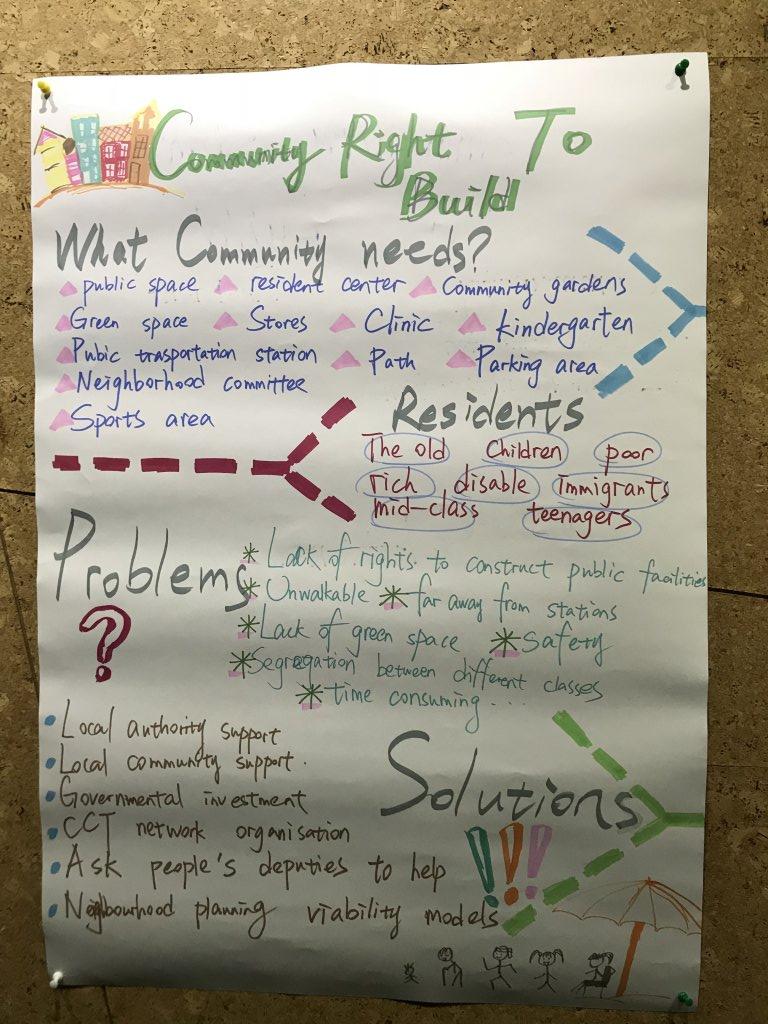 Community Right To
Build
What Community needs?
public space resident center Community gardens
Green space Stores Clinic kindergarten
Pubic trasportation station Path Parking area
Neighborhood committee
Sports area
Residents
The old Children poor
rich disable immigrants
mid-class teenagers
Problems
?
* Lack of rights to construct public facilities
* Unwalkable * far away from stations
* Lack of green space * Safety
* Segregation between different classes
* time consuming....
Solutions
!!!
• Local authority support
• Local community support.
• Governmental investment
• CCT network organisation
• Ask people's deputies to help
• Neighbourhood planning viability models